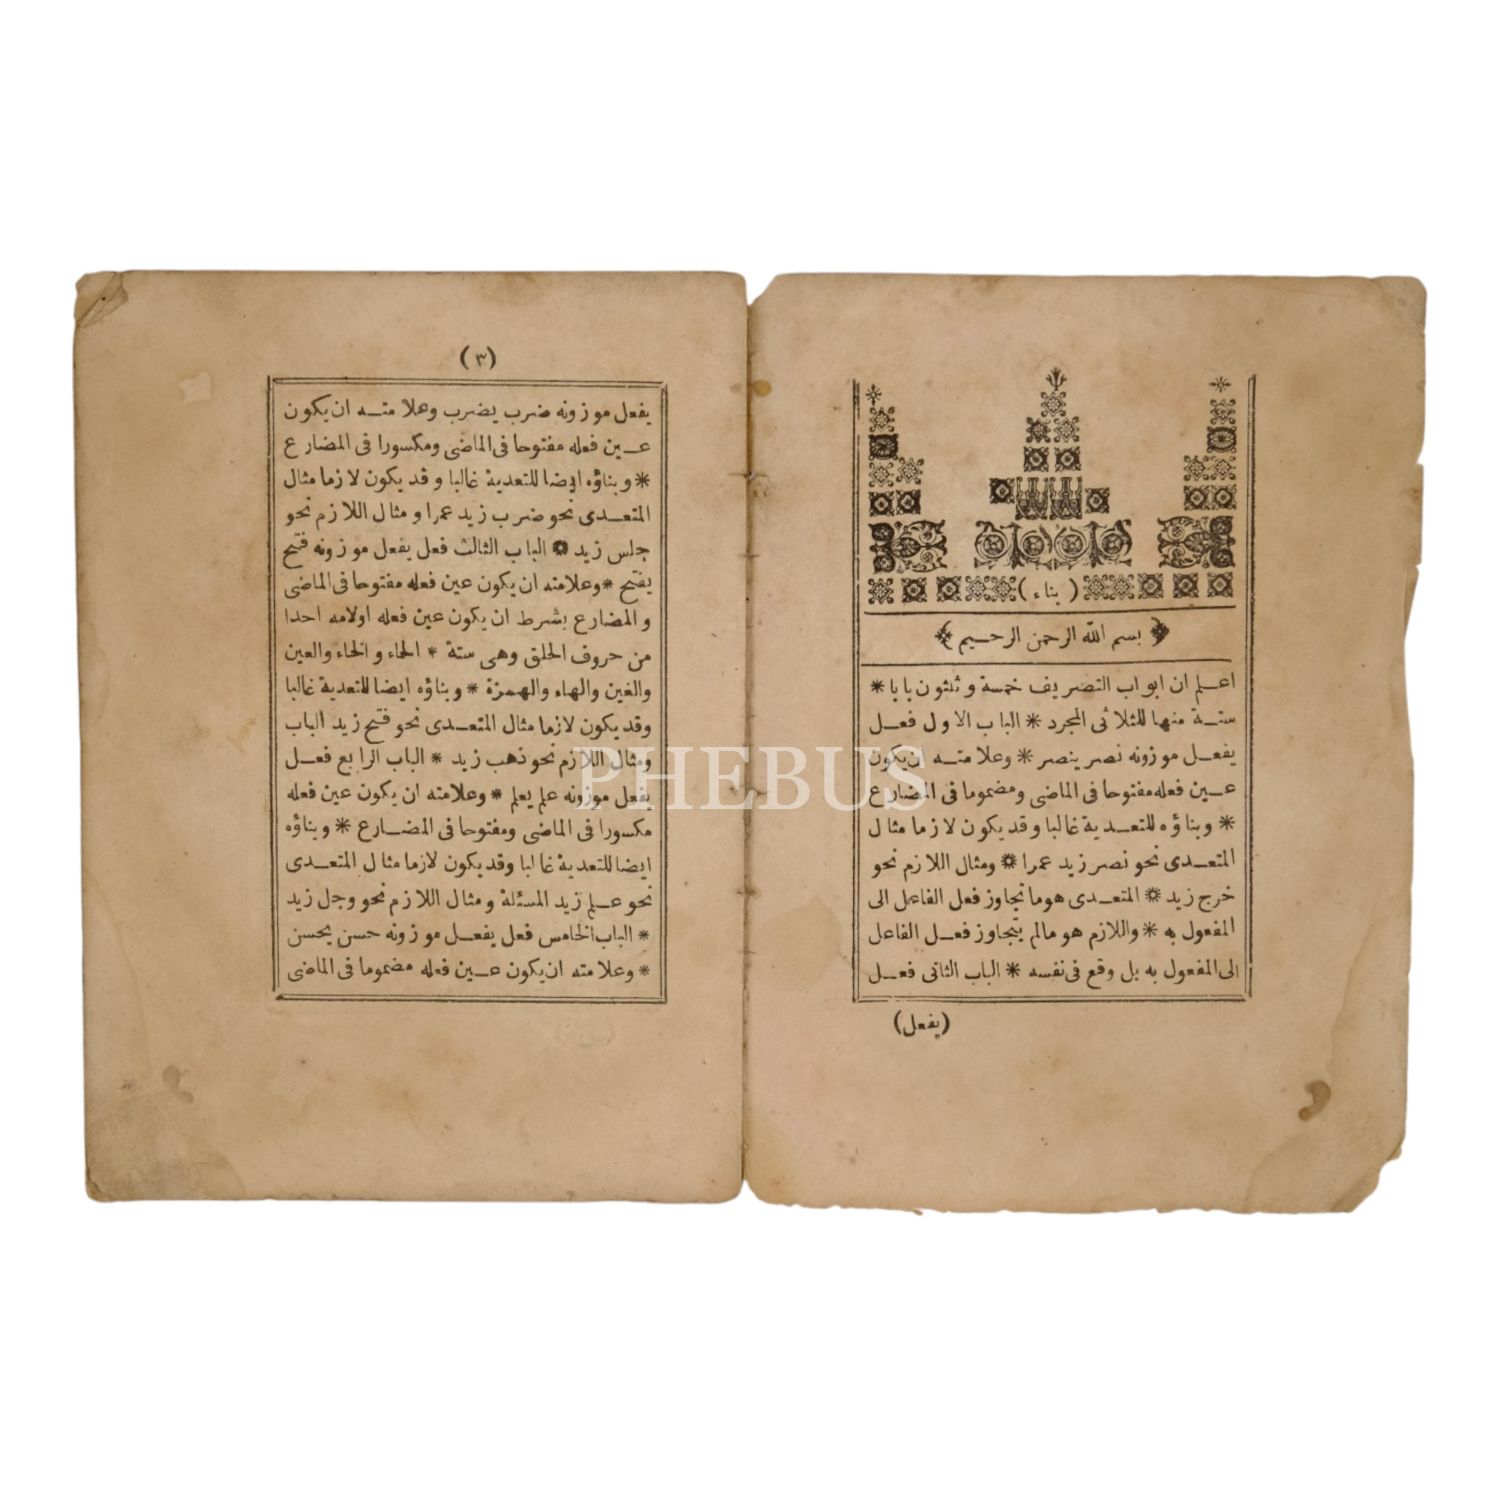 (بناء)
بسم الله الرحمن الرحيم
اعلم ان ابواب التصريف خمسة وثلثون بابا *
ستة منها للثلاثى المجرد * الباب الاول فعل
يفعل موزونه نصر ينصر * وعلامته ان يكون
عين فعله مفتوحا فى الماضى ومضموما فى المضارع
* وبناؤه للتعدية غالبا وقد يكون لازما مثال
المتعدى نحو نصر زيد عمرا * ومثال اللازم نحو
خرج زيد * المتعدى هوما تجاوز فعل الفاعل الى
المفعول به * واللازم هو مالم يتجاوز فعل الفاعل
الى المفعول به بل وقع فى نفسه * الباب الثانى فعل
(يفعل)
(٣)
يفعل موزونه ضرب يضرب وعلامته ان يكون
عين فعله مفتوحا فى الماضى ومكسورا فى المضارع
* وبناؤه ايضا للتعدية غالبا وقد يكون لازما مثال
المتعدى نحو ضرب زيد عمرا ومثال اللازم نحو
جلس زيد * الباب الثالث فعل يفعل موزونه فتح
يفتح * وعلامته ان يكون عين فعله مفتوحا فى الماضى
والمضارع بشرط ان يكون عين فعله اولامه احدا
من حروف الحلق وهى ستة * الحاء والخاء والعين
والغين والهاء والهمزة * وبناؤه ايضا للتعدية غالبا
وقد يكون لازما مثال المتعدى نحو فتح زيد الباب
ومثال اللازم نحو ذهب زيد * الباب الرابع فعل
يفعل موزونه علم يعلم * وعلامته ان يكون عين فعله
مكسورا فى الماضى ومفتوحا فى المضارع * وبناؤه
ايضا للتعدية غالبا وقد يكون لازما مثال المتعدى
نحو علم زيد المسئلة ومثال اللازم نحو وجل زيد
* الباب الخامس فعل يفعل موزونه حسن يحسن
* وعلامته ان يكون عين فعله مضموما فى الماضى
PHEBUS